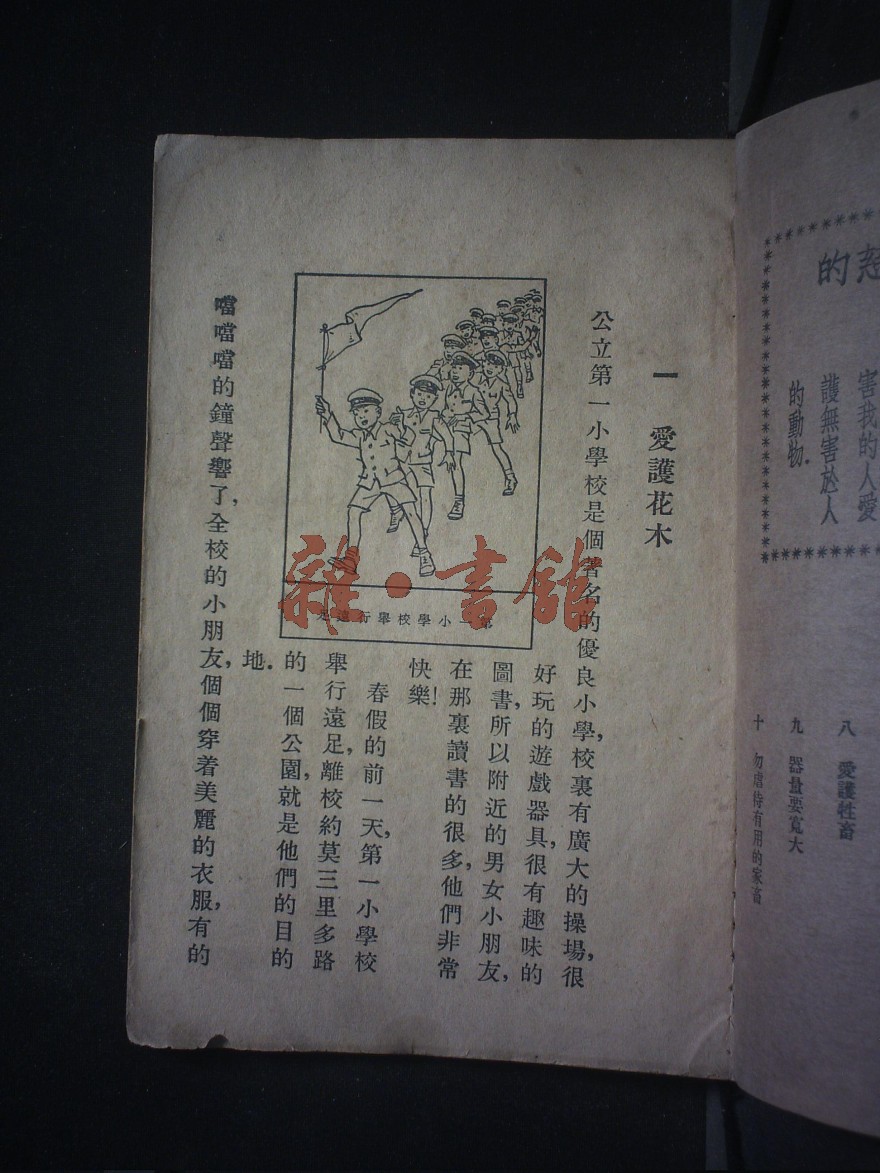 的
害我的人愛
護無害於人
的動物.
八 愛護牲畜
九 器量要寬大
十 勿虐待有用的家畜
一 愛護花木
公立第一小學校是個著名的優良小學,校裏有廣大的操場,很
好玩的遊戲器具,很有趣味的
圖書,所以附近的男女小朋友,
在那裏讀書的很多,他們非常
快樂!
春假的前一天,第一小學校
舉行遠足,離校約莫三里多路
的一個公園,就是他們的目的
地.
噹噹噹的鐘聲響了,全校的小朋友,個個穿着美麗的衣服,有的
第一小學校舉行遠足
雜·書館